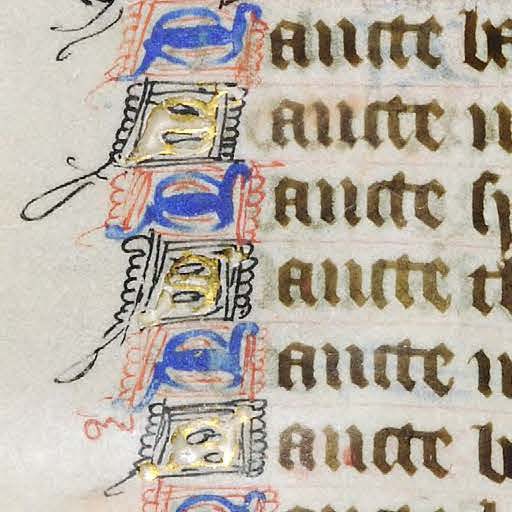 Sancte be
Sancte n
Sancte h
Sancte th
Sancte
Sancte b